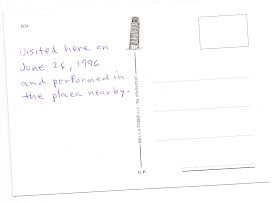 PISA
Visited here on
June 26, 1996
and performed in
the plaza nearby.
G.P.